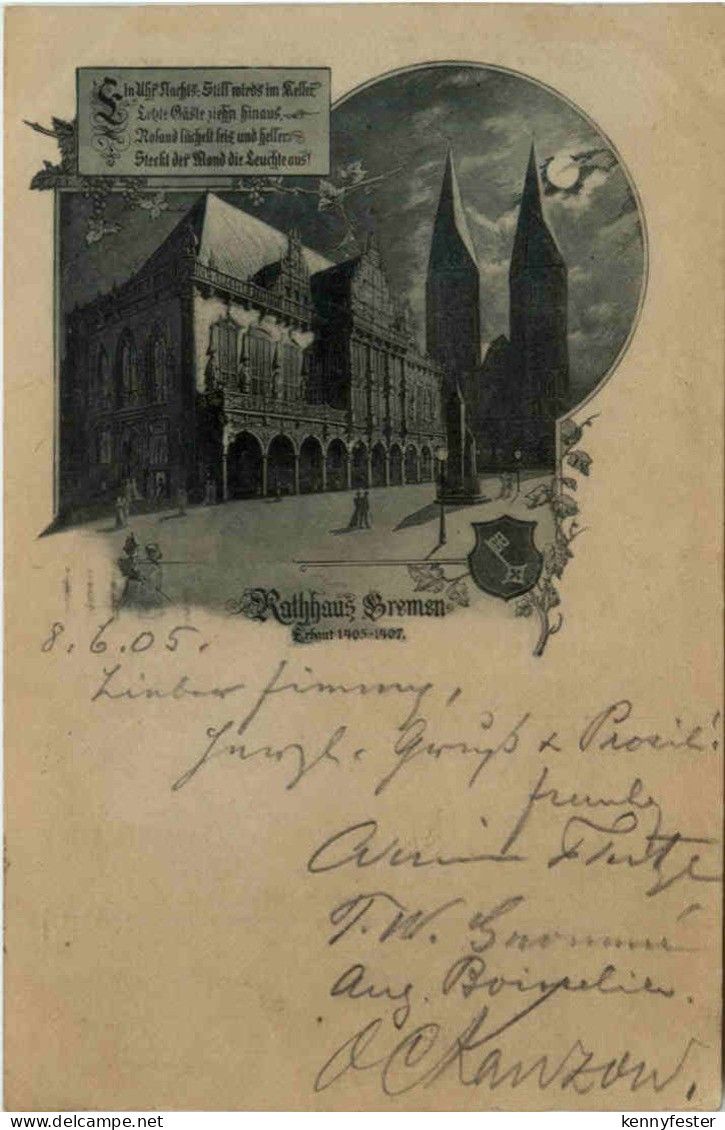 Ein Uhr Nachts: Still wirds im Keller
Letzte Gäste ziehn hinaus,
Roland lächelt leis und heller
Steckt der Mond die Leuchte aus!
Rathhaus Bremen
Erbaut 1405-1407.
8.6.05.
Lieber Jimmy,
Herzl. Gruß & Prosit!
T. W.
Aug.
O C Kanzow.
kennyfester